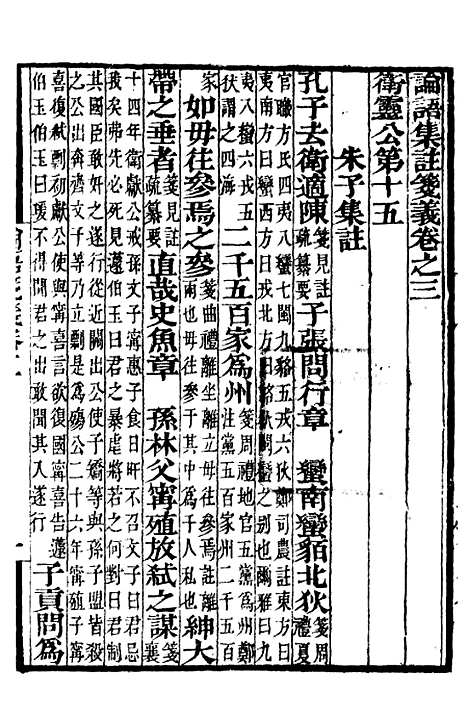 論語集註箋義卷之三
衛靈公第十五
朱子集註
孔子去衛適陳箋見註疏纂要子張問行章　蠻南蠻貊北狄箋周禮夏
官職方氏四夷八蠻七閩九貉五戎六狄鄭司農註東方曰
夷南方曰蠻西方曰戎北方曰貉狄閩蠻之別也爾雅曰九
夷八蠻六戎五狄謂之四海　二千五百家為州箋周禮地官五黨為州鄭註黨五百家州二千五百
家　如毋往參焉之參箋曲禮離坐離立毋往參焉註離兩也毋往參于其中為千人私也紳大
帶之垂者箋見註疏纂要直哉史魚章　孫林父甯殖放弒之謀箋襄
十四年衛獻公戒孫文子甯惠子食日旰不召文子曰君忌
我矣弗先必死見蘧伯玉曰君之暴虐將若之何對曰君制
其國臣敢奸之遂行從近關出公使子蟜等與孫子盟皆殺
之公出奔齊文子等乃立剽是為殤公二十六年甯殖子甯
喜復弒剽初獻公使與甯喜言欲復國甯喜告蘧
伯玉伯玉曰瑗不得聞君之出敢聞其入遂行　子貢問為